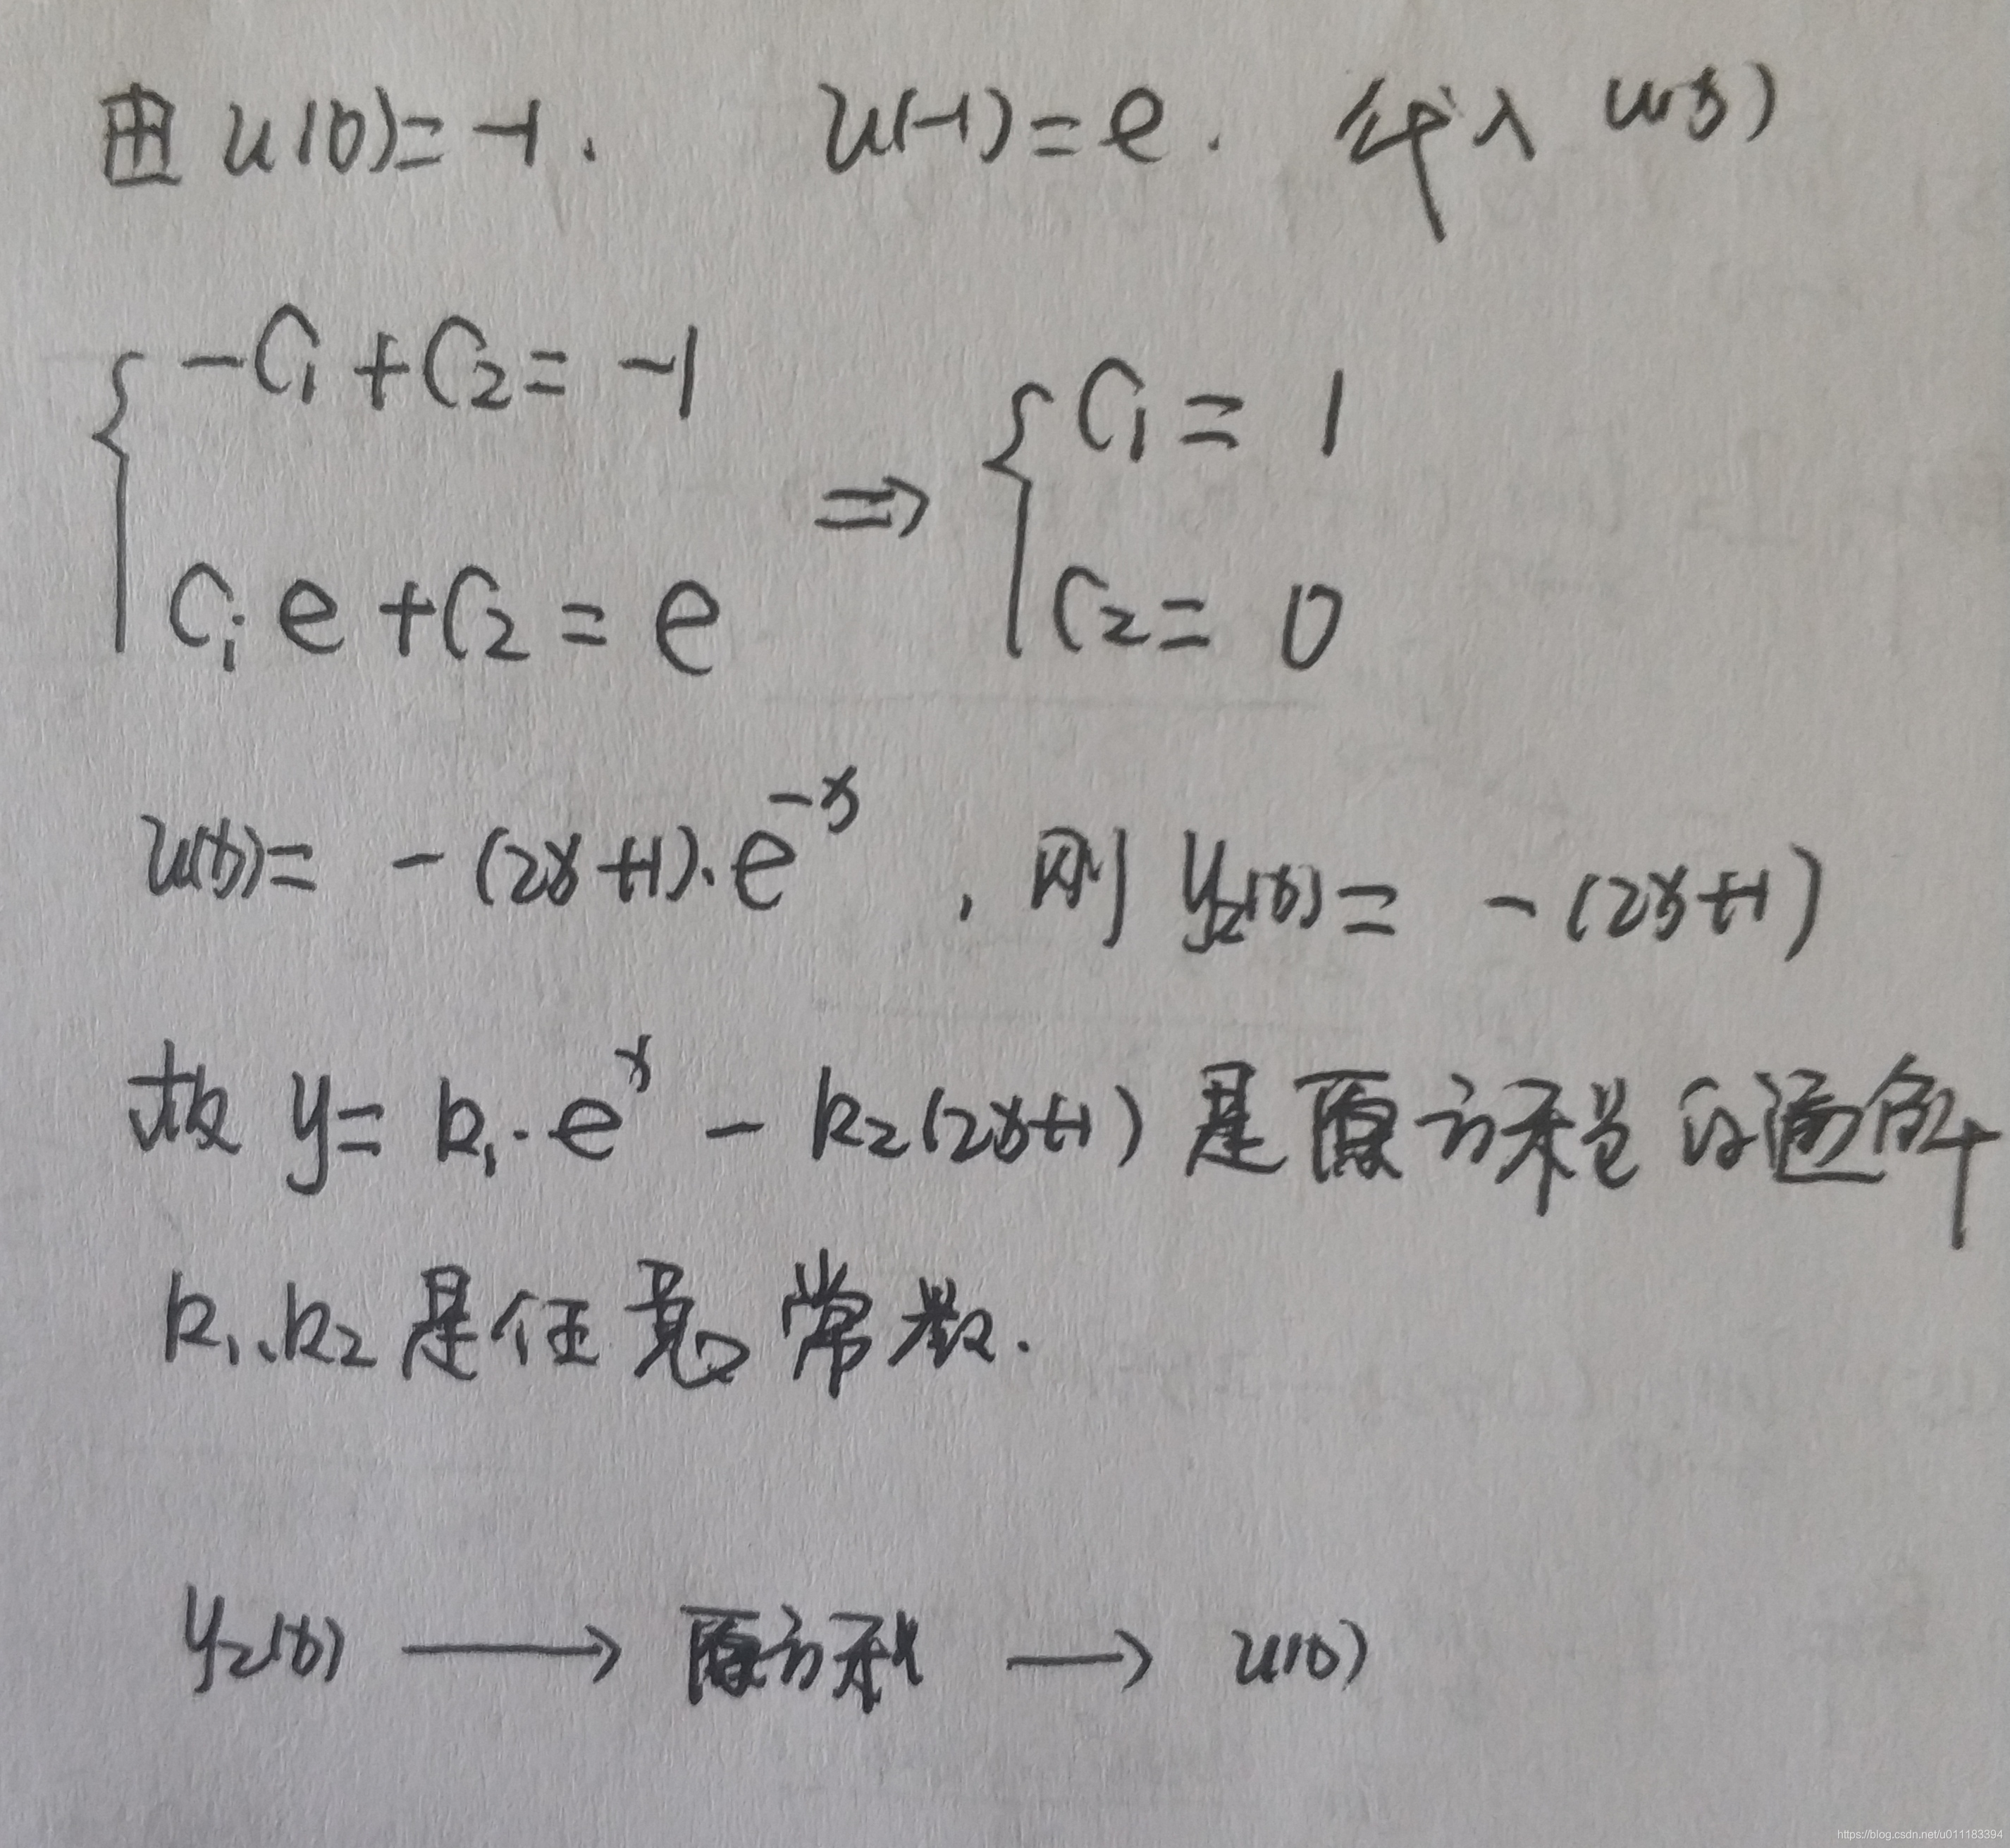 由 u(0)=-1. u(-1)=e. 代入 u(x)
-C₁+C₂=-1
C₁e+C₂=e
⇒
C₁=1
C₂=0
u(x)= -(2x+1)·e^{-x}, 则 y₂(x)= -(2x+1)
故 y= k₁·e^x - k₂(2x+1) 是原方程的通解
k₁、k₂是任意常数.
y₂(x) → 原方程 → u(x)
https://blog.csdn.net/u011183394